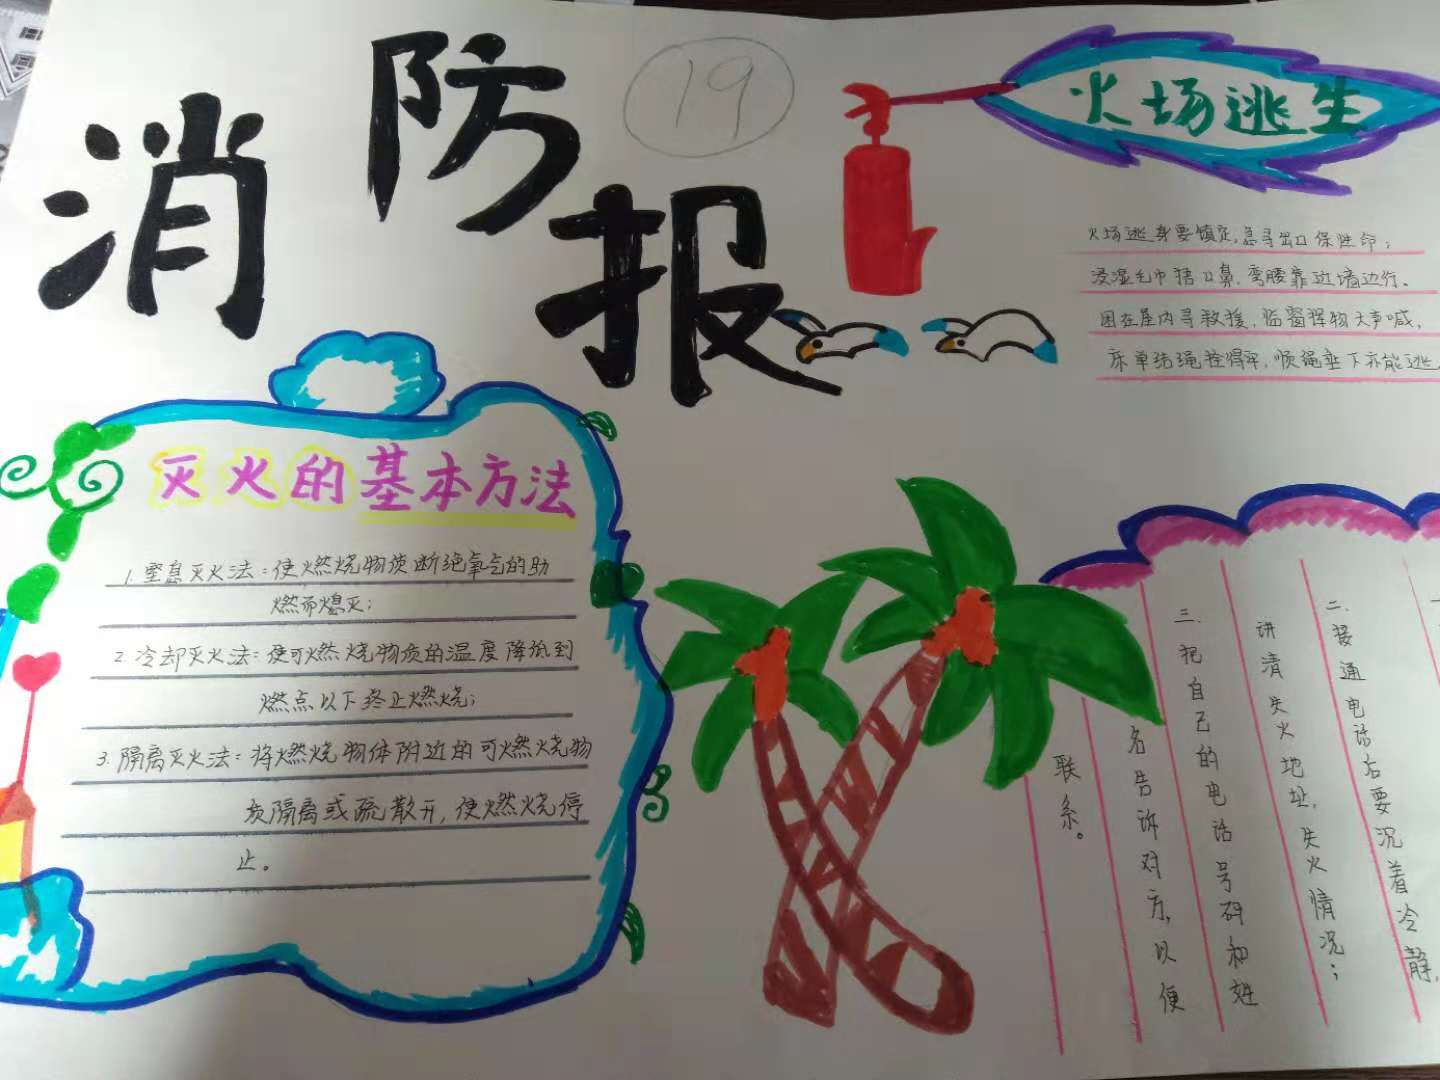 消防报
19
火场逃生
火场逃身要镇定,急寻出口保性命;
浸湿毛巾捂口鼻,弯腰靠边墙边行。
困在屋内寻救援,临窗挥物大声喊,
床单结绳拴得牢,顺绳垂下亦能逃
灭火的基本方法
1.窒息灭火法:使燃烧物质断绝氧气的助
燃而熄灭;
2.冷却灭火法:使可燃烧物质的温度降低到
燃点以下终止燃烧;
3.隔离灭火法:将燃烧物体附近的可燃烧物
质隔离或疏散开,使燃烧停
止。
二.接通电话后要沉着冷静,
讲清失火地址,失火情况;
三.把自己的电话号码和姓
名告诉对方,以便
联系。